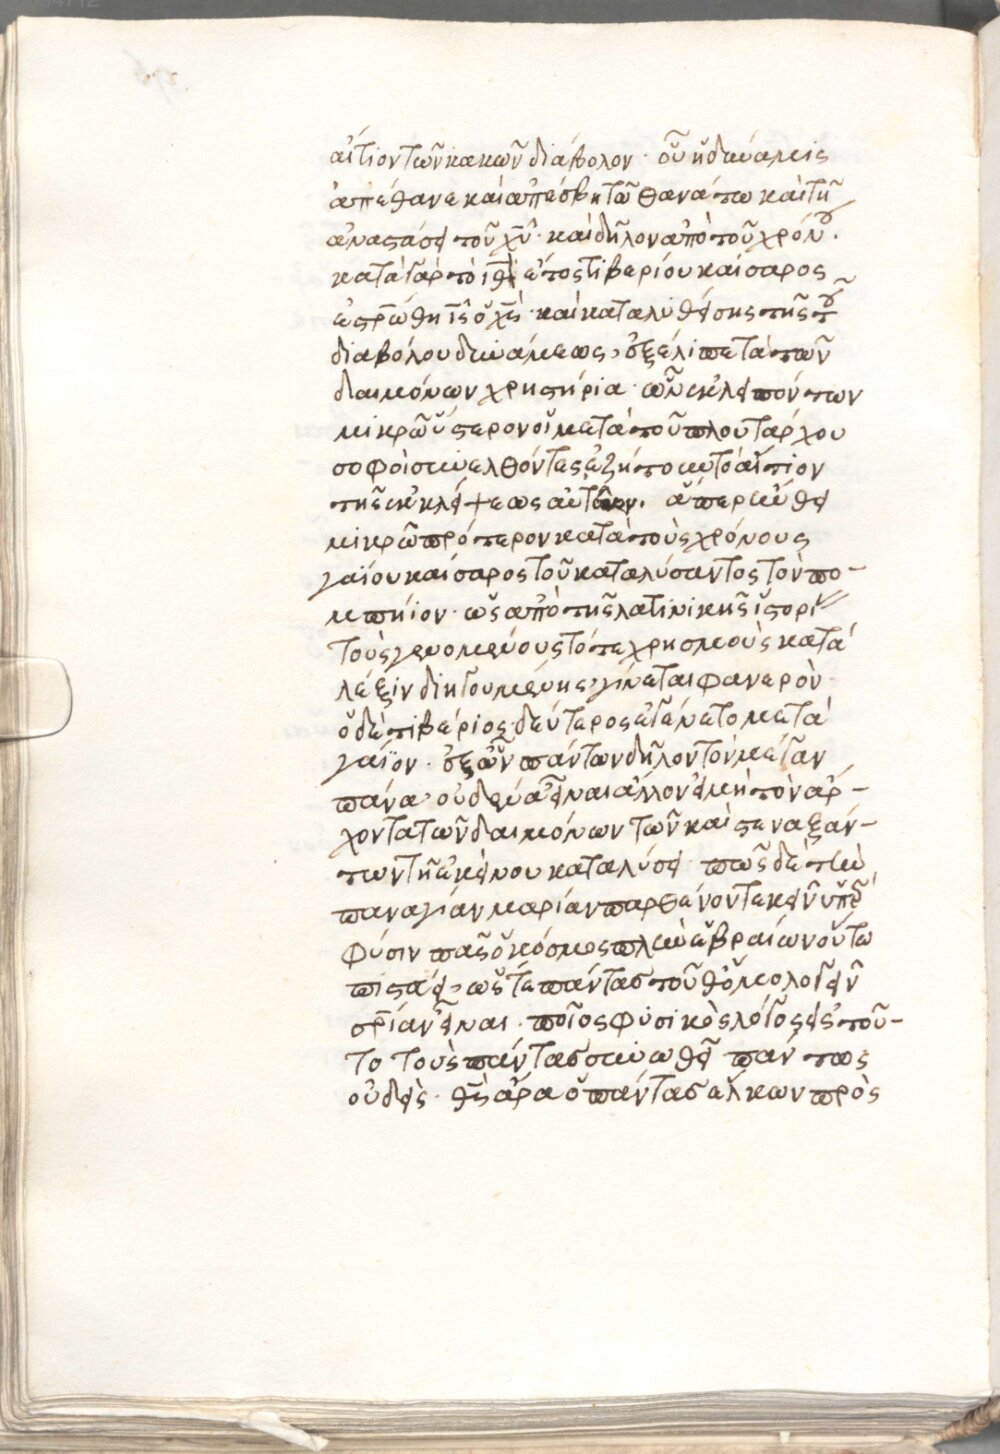 αἴτιον τῶν κακῶν διάβολον· οὗ ἡ δύναμις
ἀπέθανε καὶ ἀπέσβη τῷ θανάτω καὶ τῆ
ἀναστάσει τοῦ χυ̅· καὶ δῆλον ἀπὸ τοῦ χρόνου·
κατὰ γὰρ τὸ ιθ̅ ἔτος τιβερίου καίσαρος
ἐστρώθη ις̅ ὁ χς̅· καὶ καταλυθείσης τῆς τοῦ
διαβόλου δυνάμεως, ἐξέλιπε τὰ τῶν
δαιμόνων χρηστήρια· ὧν ἐκλειπόντων
μικρῶ ὕστερον οἱ μετὰ τοῦ πλουτάρχου
σοφοὶ συνελθόντες ἐζήτουν τὸ αἴτιον
τῆς ἐκλείψεως αὐτῶν. ἅπερ συνέθει
μικρῶ πρότερον κατὰ τοὺς χρόνους
γαΐου καίσαρος τοῦ καταλύσαντος τὸν πο-
μπήιον· ὡς ἀπὸ τῆς λατινικῆς ἱστορί
τοὺς γενομένους τότε χρησμοὺς κατὰ
λέξιν διηγουμένης, γίνεται φανερὸν·
ὁ δὲ τιβέριος δεύτερος ἐγένετο μετὰ
γαΐον· ἐξ ὧν πάντων δῆλον τὸν μέγαν
πάνα, οὐδένα εἶναι ἄλλον εἰ μὴ τὸν ἄρ-
χοντα τῶν δαιμόνων τῶν καὶ στεναξάν-
των τῇ ἐκείνου καταλύσει· πῶς δὲ τὴν
παναγίαν μαρίαν παρθένον τεκεῖν ὑπὲρ
φύσιν πᾶς ὁ κόσμος πλὴν ἑβραίων οὕτω
πιστεύει, ὥστε πάντας τοῦθ' ὁμολογεῖν
σρίαν εἶναι· ποῖος φυσικὸς λόγος εἰς τοῦ-
το τοὺς πάντας συνωθεῖ πάντως
οὐδεὶς· θς̅ ἄρα ὁ πάντας ἕλκων πρὸς